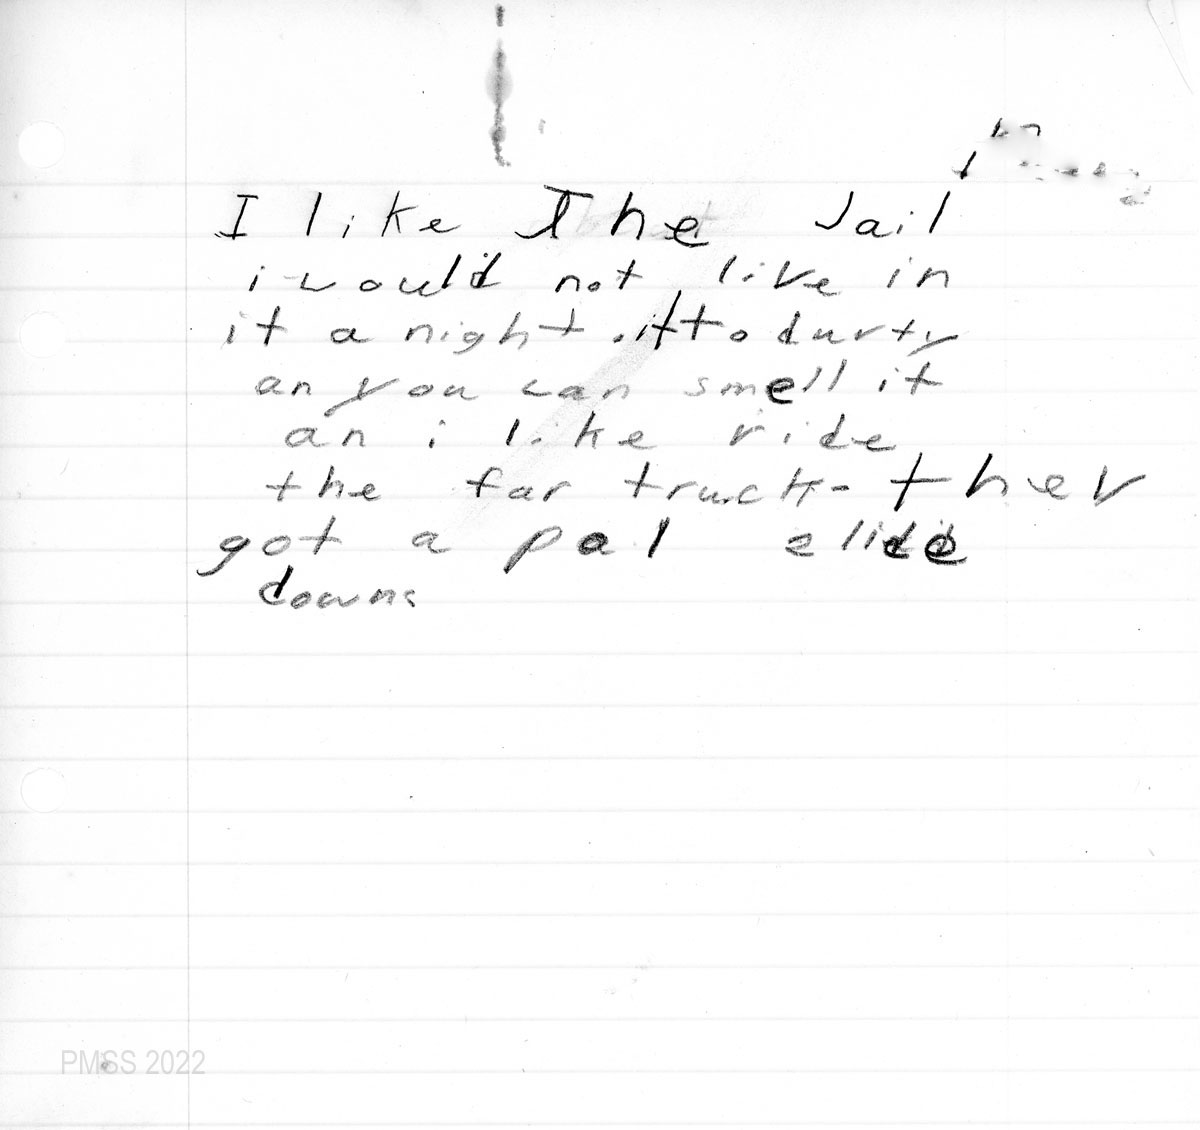 I like The Jail
i would not live in
it a night . it to durty
an you can smell it
an i like ride
the far truck - ther
got a pal slide
downs
PMSS 2022